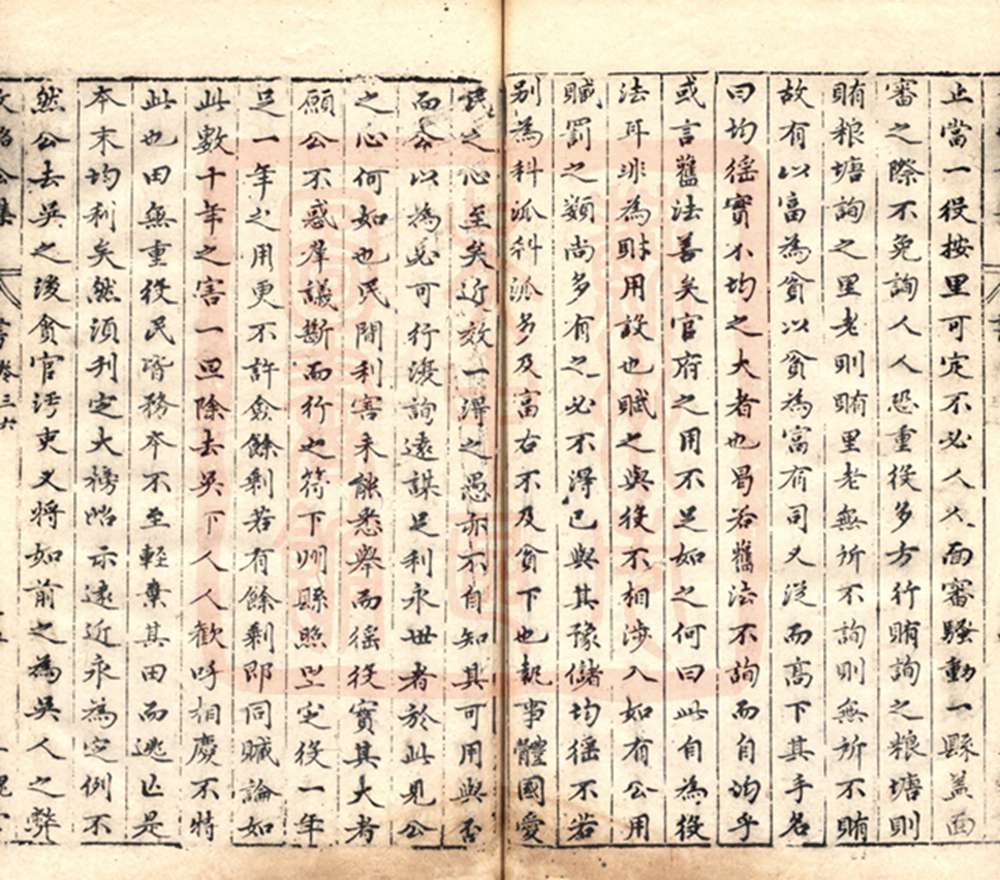 止當一役按里可定不必人人面審騷動一縣盖面
審之際不免詢人人恐重役多方行賄詢之粮塘則
賄粮塘詢之里老則賄里老無所不詢則無所不賄
故有以富為貧以貧為富有司又從而高下其手名
曰均徭實不均之大者也曷若舊法不詢而自均乎
或言舊法善矣官府之用不足如之何曰此自為役
法耳非為財用設也賦之與役不相渉入如有公用
贓罰之類尚多有之必不得已與其豫儲均徭不若
别為科派科派多及富右不及貧下也執事體國愛
民之心至矣近效一得之愚亦不自知其可用與否
而公以為必可行復詢遠謀足利永世者於此見公
之心何如也民間利害未能悉舉而徭役實其大者
願公不惑群議斷而行之符下州縣照里定役一年
足一年之用更不許僉餘剩若有餘剩即同贓論如
此數十年之害一旦除去吳下人人歡呼相慶不特
此也田無重役民皆務本不至輕棄其田而逃亡是
本末均利矣然須刊定大榜昭示遠近永為定例不
然公去吳之後貪官污吏又將如前之為吳人之弊
文恪公集 書卷三六